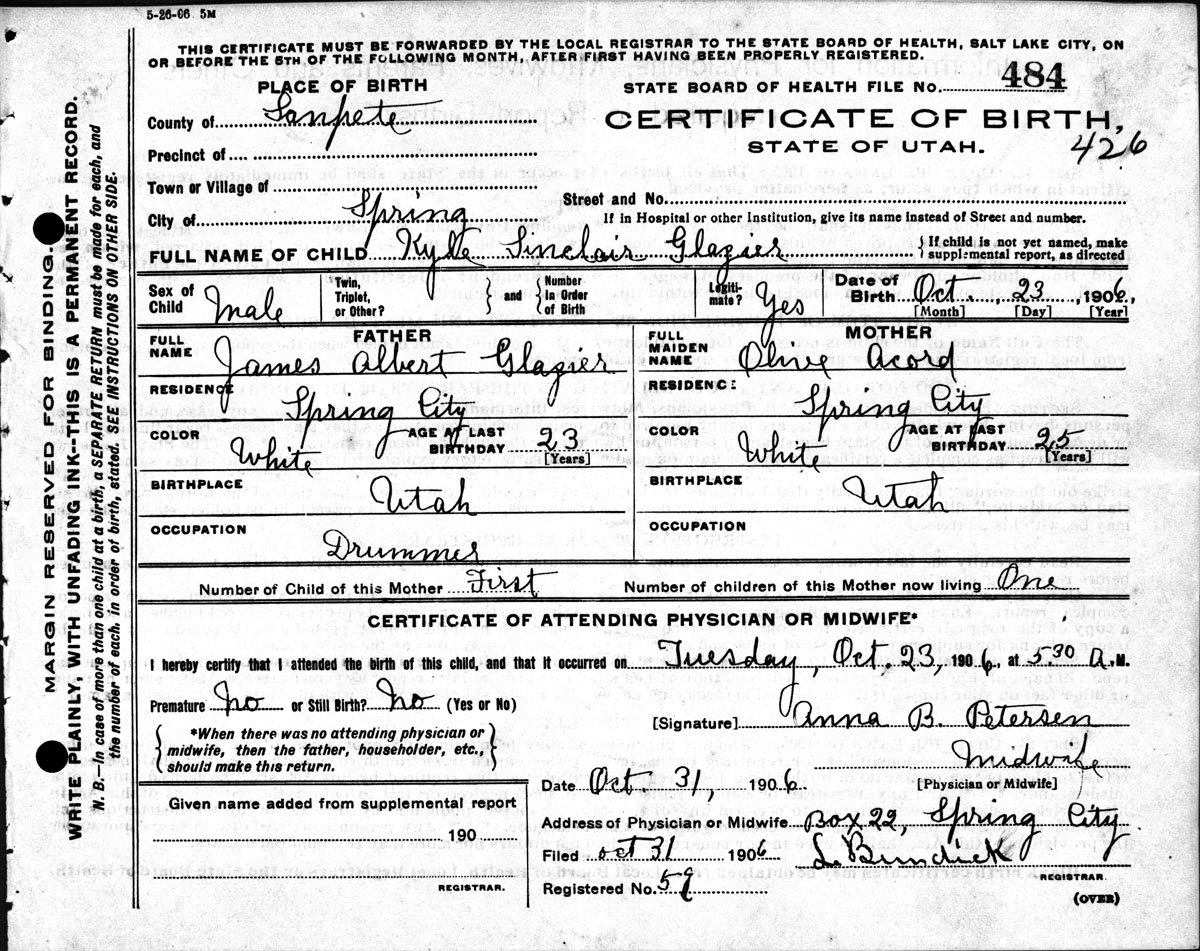 5-26-06 5M
THIS CERTIFICATE MUST BE FORWARDED BY THE LOCAL REGISTRAR TO THE STATE BOARD OF HEALTH, SALT LAKE CITY, ON
OR BEFORE THE 5TH OF THE FOLLOWING MONTH, AFTER FIRST HAVING BEEN PROPERLY REGISTERED.
MARGIN RESERVED FOR BINDING.
WRITE PLAINLY, WITH UNFADING INK--THIS IS A PERMANENT RECORD.
N. B.--In case of more than one child at a birth, a SEPARATE RETURN must be made for each, and
the number of each, in order of birth, stated. SEE INSTRUCTIONS ON OTHER SIDE.
PLACE OF BIRTH
STATE BOARD OF HEALTH FILE No. 484
County of Sanpete
CERTIFICATE OF BIRTH,
STATE OF UTAH.
426
Precinct of
Town or Village of
Street and No.
City of Spring
If in Hospital or other Institution, give its name instead of Street and number.
FULL NAME OF CHILD Kyle Sinclair Glazier
{If child is not yet named, make
supplemental report, as directed
Sex of Child Male
Twin, Triplet, or Other? } and { Number In Order of Birth
Legiti-mate? Yes
Date of Birth Oct. , 23 , 1906,
[Month] [Day] [Year]
FATHER
FULL NAME James Albert Glazier
MOTHER
FULL MAIDEN NAME Olive Acord
RESIDENCE Spring City
RESIDENCE Spring City
COLOR White AGE AT LAST BIRTHDAY 23 [Years]
COLOR White AGE AT LAST BIRTHDAY 25 [Years]
BIRTHPLACE Utah
BIRTHPLACE Utah
OCCUPATION Drummer
OCCUPATION
Number of Child of this Mother First Number of children of this Mother now living One
CERTIFICATE OF ATTENDING PHYSICIAN OR MIDWIFE*
I hereby certify that I attended the birth of this child, and that it occurred on Tuesday, Oct. 23, 1906, at 5 30 A. M.
Premature No or Still Birth? No (Yes or No)
[Signature] Anna B. Petersen
{ *When there was no attending physician or
midwife, then the father, householder, etc.,
should make this return. }
Midwife
[Physician or Midwife]
Date Oct. 31, 1906.
Given name added from supplemental report
190
REGISTRAR.
Address of Physician or Midwife Box 22, Spring City
Filed Oct 31 1906 L. Bundick
REGISTRAR.
Registered No. 59
(OVER)